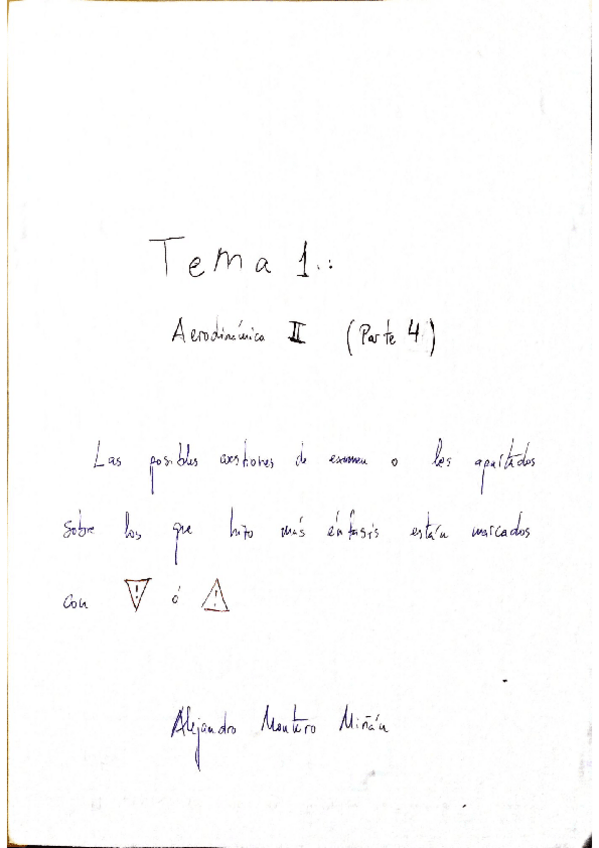 Tema 1.:
Aerodinámica II (Parte 4)
Las posibles cuestiones de examen o los apartados
sobre los que hizo más énfasis están marcados
con ⚠ ó ⚠
Alejandro Montero Miñán